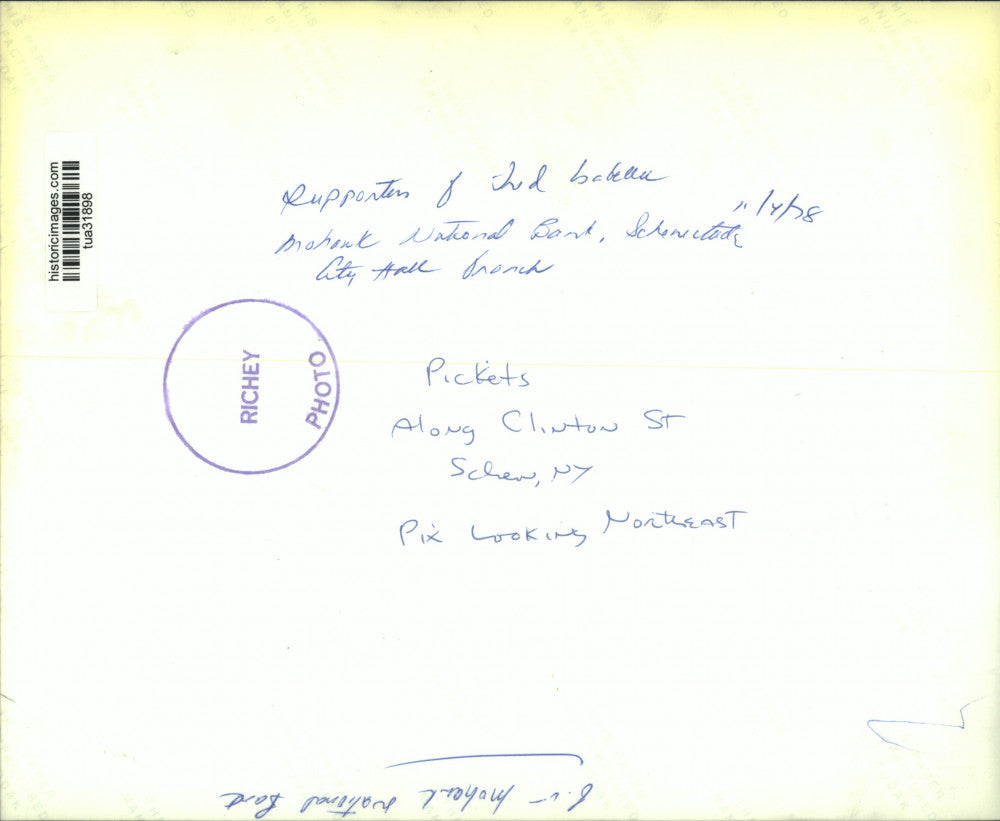 historicimages.com
tua31898
Supporters of Fred Isabella
Mohawk National Bank, Schenectady 11/4/78
City Hall Branch
RICHEY
PHOTO
Pickets
Along Clinton ST
Schen, NY
Pix Looking Northeast
Mohawk National Bank